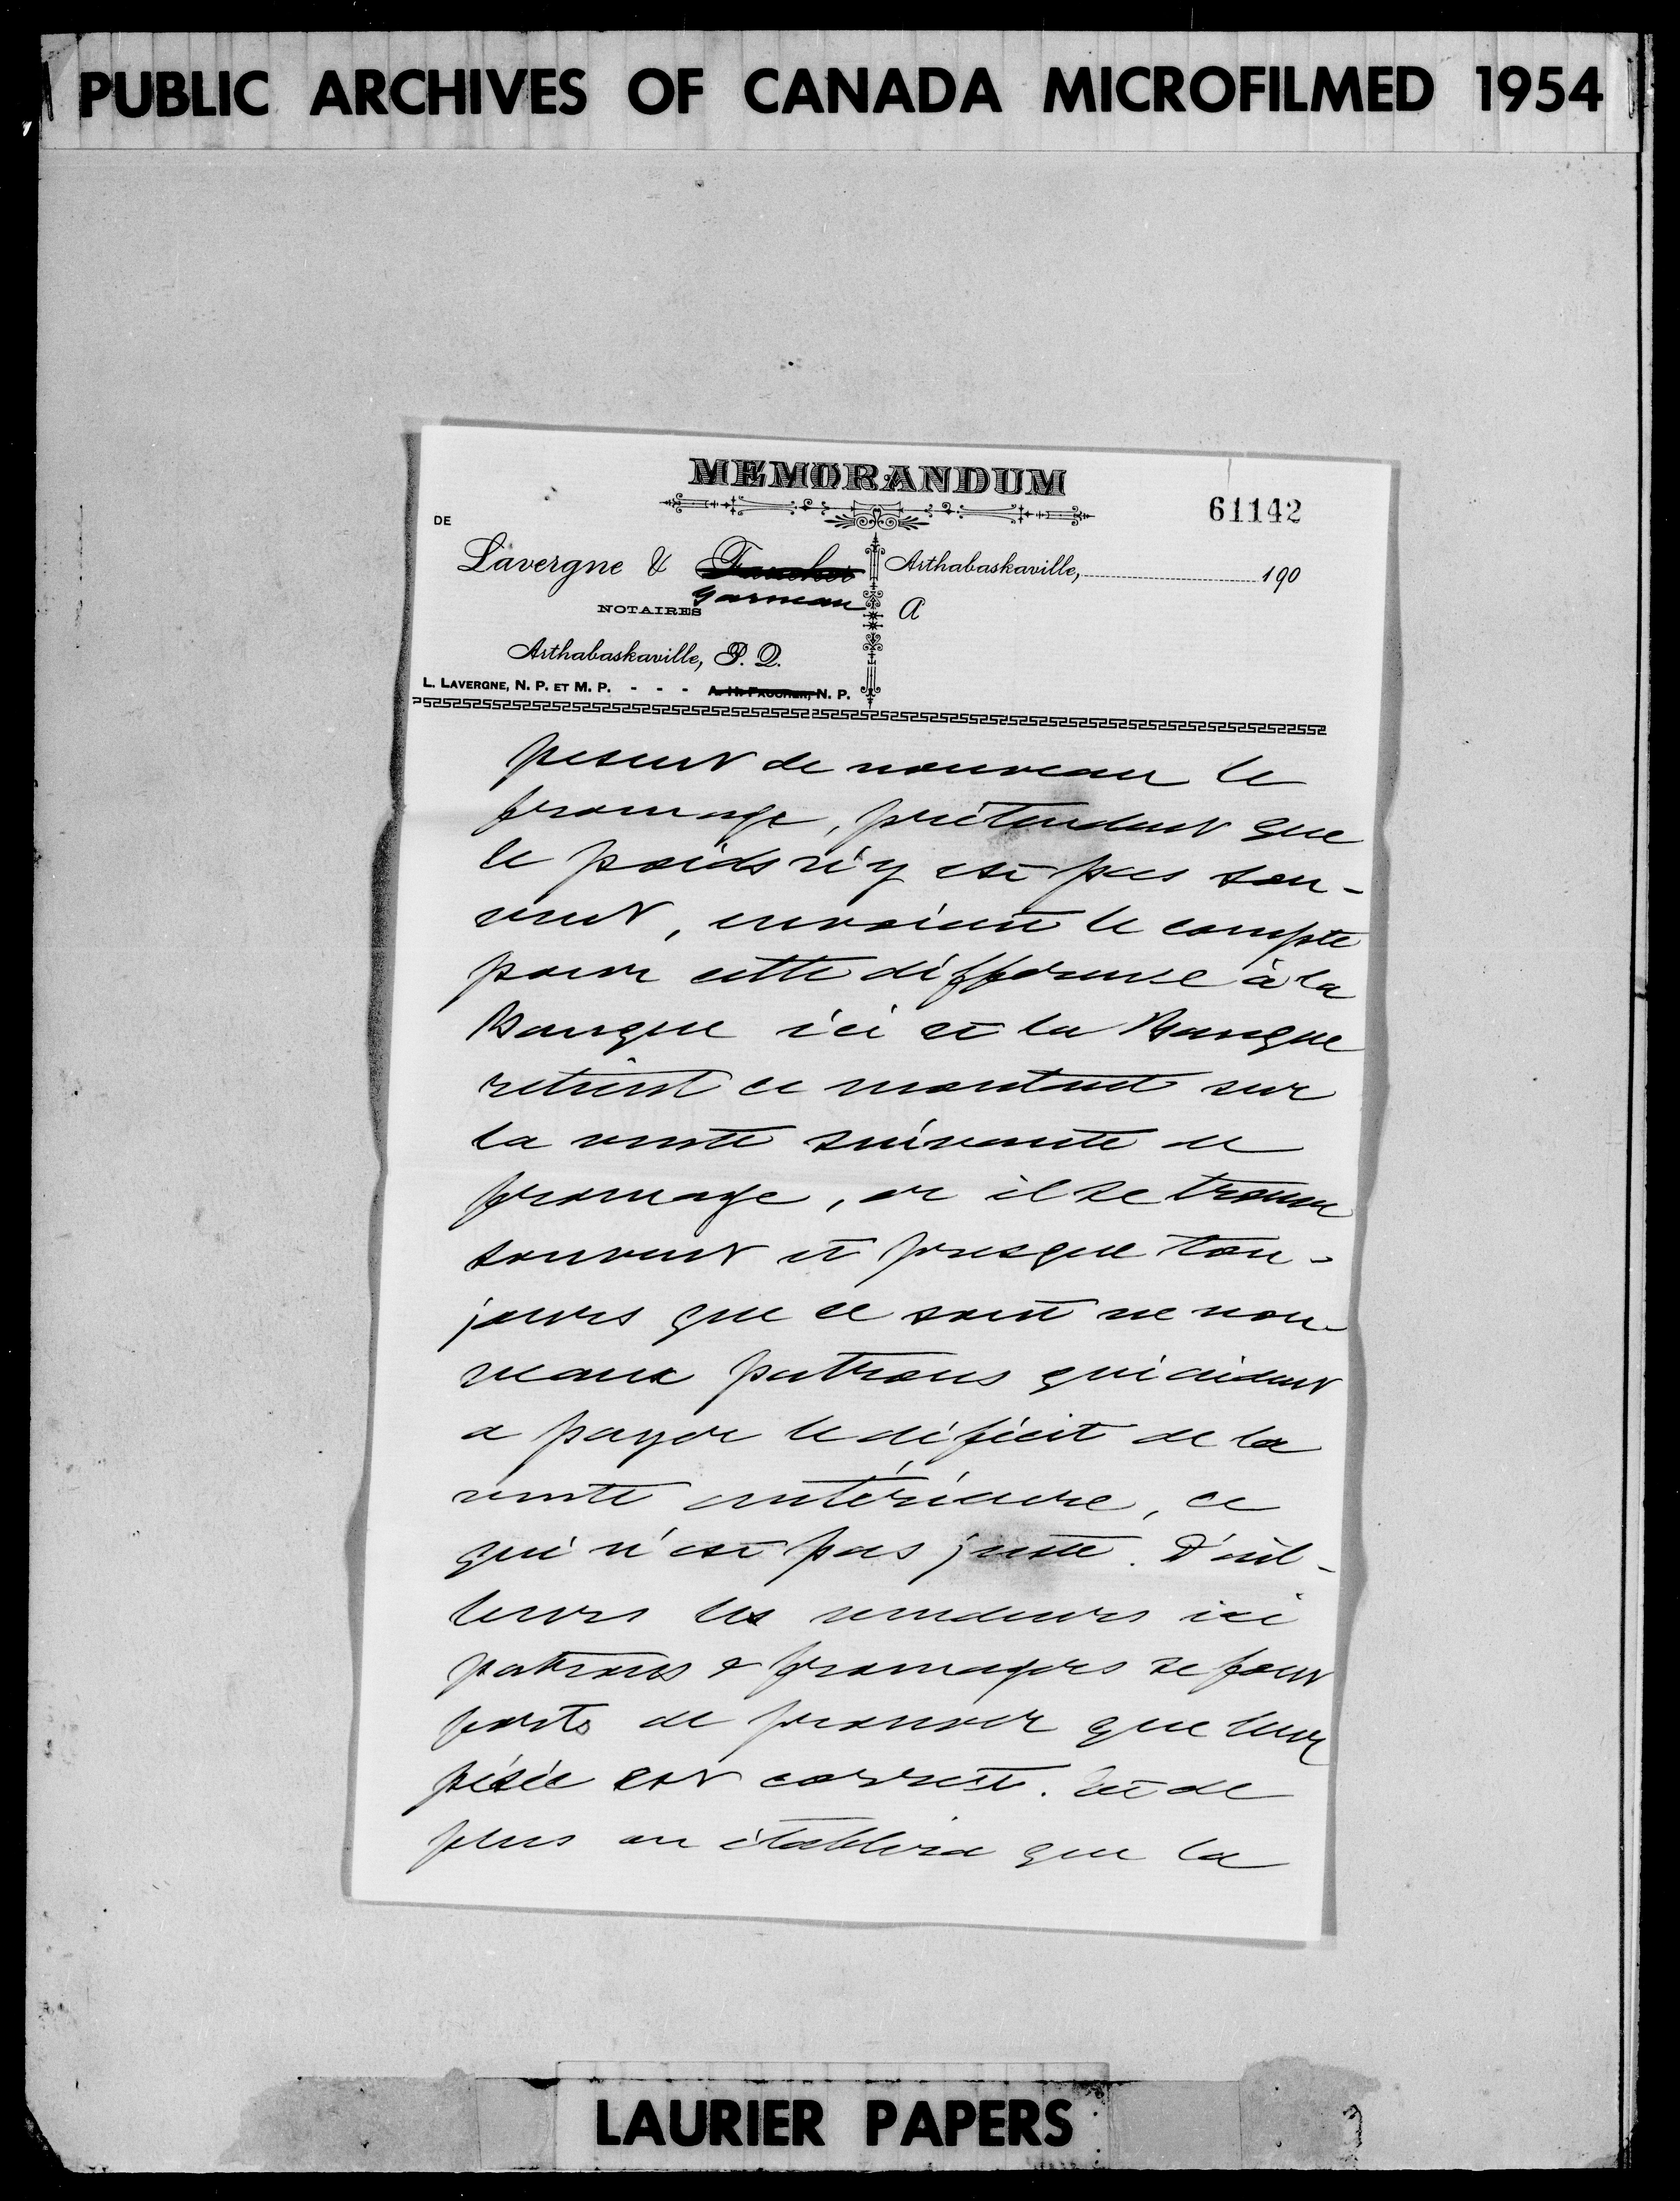 PUBLIC ARCHIVES OF CANADA MICROFILMED 1954
MEMORANDUM
61142
DE
Lavergne & Faucher Arthabaskaville, 190
Garneau
NOTAIRES
A
Arthabaskaville, P. Q.
L. LAVERGNE, N. P. ET M. P. - - - A. H. FAUCHER, N. P.
pesent de nouveau le
fromage, prétendant que
le poids n'y est pas sou-
vent, envoient le compte
pour cette différence à la
Banque ici et la Banque
retient ce montant sur
la vente suivante de
fromage, or il se trouve
souvent et presque tou-
jours que ce sont de nou-
veaux patrons qui aident
a payer le déficit de la
vente antérieure, ce
qui n'est pas juste. D'ail-
leurs les vendeurs ici
patrons & fromagers se font
forts de prouver que leur
pésée est correct. Et de
plus on établira que la
LAURIER PAPERS